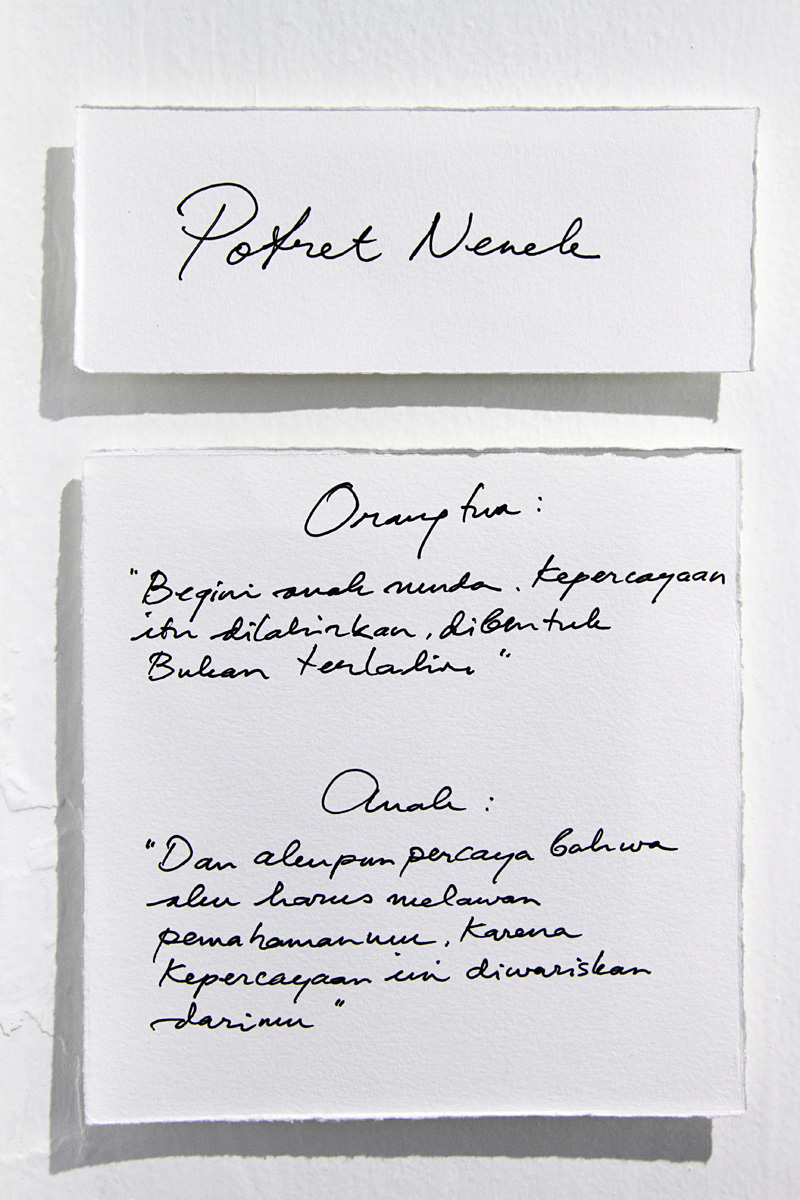 Potret Nenek
Orangtua :
"Begini anak muda. Kepercayaan
itu dilahirkan, dibentuk
Bukan terlahir"
Anak :
"Dan akupun percaya bahwa
aku harus melawan
pemahamanmu, karena
Kepercayaan ini diwariskan
darimu"